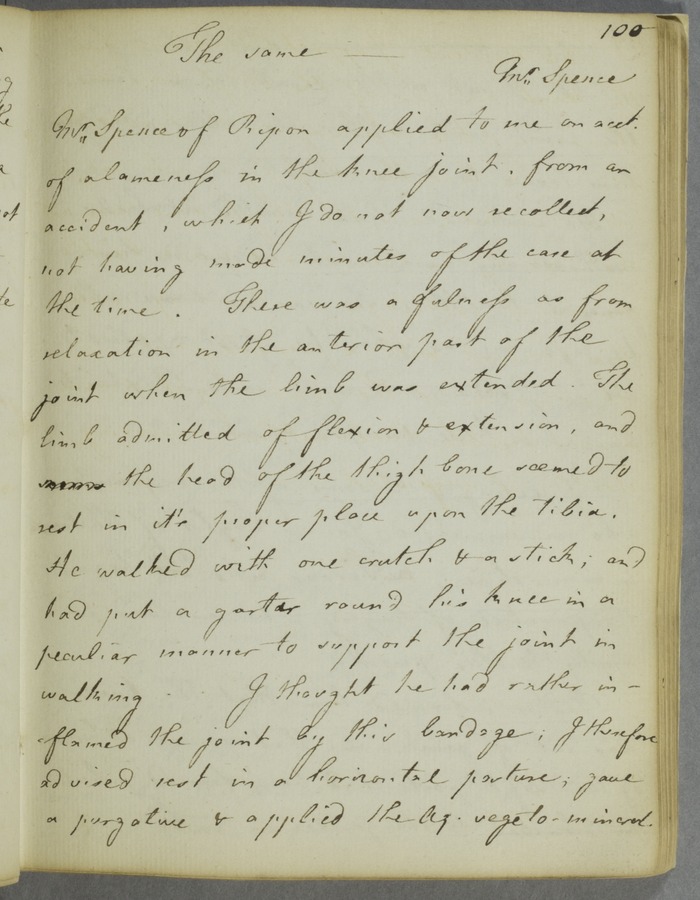 100
The same —
Mr. Spence
Mr. Spence of Ripon applied to me on acct.
of a lameness in the knee joint, from an
accident, which I do not now recollect,
not having made minutes of the case at
the time. There was a fulness as from
relaxation in the anterior part of the
joint when the limb was extended. The
limb admitted of flexion & extension, and
the head of the thigh bone seemed to
rest in it's proper place upon the tibia.
He walked with one crutch & a stick; and
had put a garter round his knee in a
peculiar manner to support the joint in
walking. I thought he had rather in-
-flamed the joint by this bandage; I therefore
advised rest in a horizontal posture; gave
a purgative & applied the Aq. vegeto-mineral.